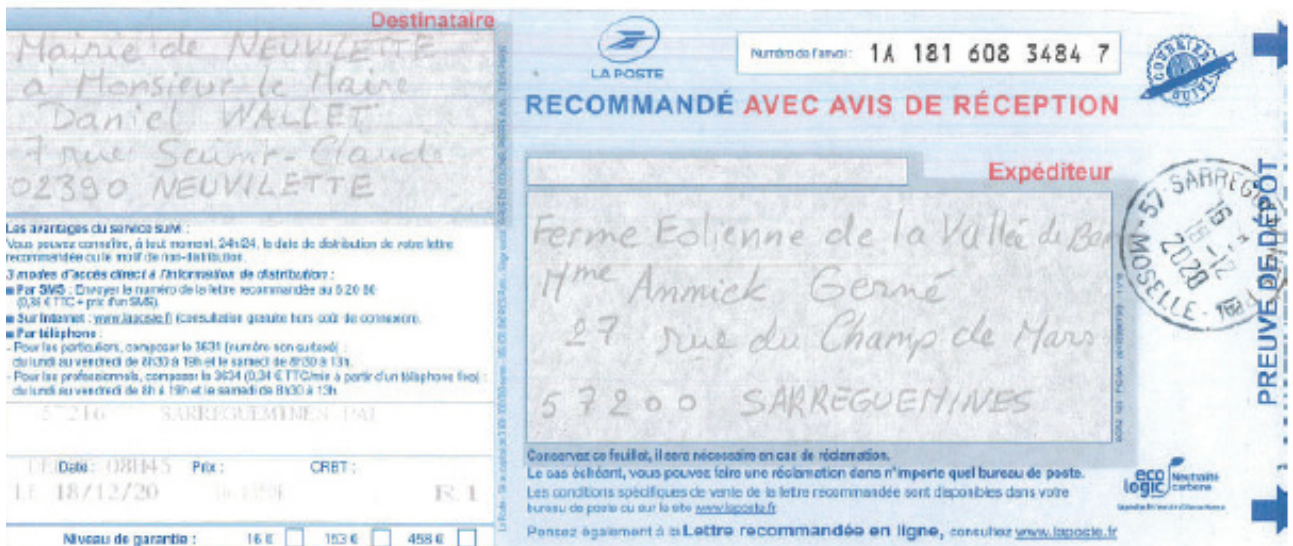 Destinataire
Mairie de NEUVILETTE
à Monsieur le Maire
Daniel WALLET
7 rue Saint-Claude
02390 NEUVILETTE
Les avantages du service suivi :
Vous pouvez connaître, à tout moment, 24h/24, la date de distribution de votre lettre
recommandée ou le motif de non-distribution.
3 modes d'accès direct à l'information de distribution :
Par SMS : Envoyer le numéro de la lettre recommandée au 6 20 80
(0,35 € TTC + prix d'un SMS).
Sur Internet : www.laposte.fr (consultation gratuite hors coût de connexion).
Par téléphone :
- Pour les particuliers, composer le 3631 (numéro non surtaxé) :
du lundi au vendredi de 8h30 à 19h et le samedi de 8h30 à 13h.
- Pour les professionnels, composer le 3634 (0,34 € TTC/min à partir d'un téléphone fixe) :
du lundi au vendredi de 8h à 19h et le samedi de 8h30 à 13h.
57216 SARREGUEMINES PAL
08H45
Date : Prix : CRBT :
LE 18/12/20 R.1
Niveau de garantie : 16 € 153 € 458 €
LA POSTE
Numéro de l'envoi : 1A 181 608 3484 7
RECOMMANDÉ AVEC AVIS DE RÉCEPTION
Expéditeur
Ferme Eolienne de la Vallée de
Mme Annick Gerné
27 rue du Champ de Mars
57200 SARREGUEMINES
Conservez ce feuillet, il sera nécessaire en cas de réclamation.
Le cas échéant, vous pouvez faire une réclamation dans n'importe quel bureau de poste.
Les conditions spécifiques de vente de la lettre recommandée sont disponibles dans votre
bureau de poste ou sur le site www.laposte.fr
Pensez également à la Lettre recommandée en ligne, consultez www.laposte.fr
eco logic Neutralité carbone
57 SARREGUEMINES
18-12
2020
MOSELLE
PREUVE DE DÉPÔT